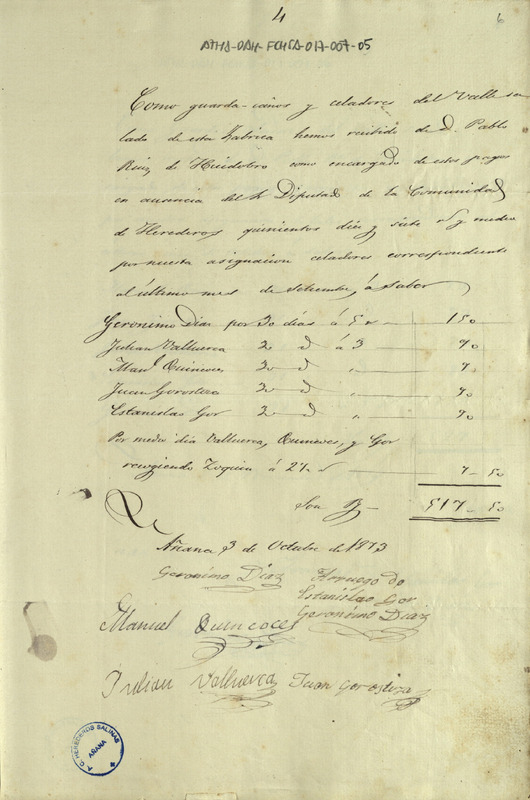 4
6
ATHA-DAH-FCHSA-017-007-05
Como guarda-caños y celadores del Valle sa
lado de esta Fabrica hemos recibido de D. Pablo
Ruiz de Huidobro como encargado de estos pagos
en ausencia del Sr Diputado de la Comunidad
de Herederos quinientos diez y siete rs y medio
por nuestra asignacion celadores correspondiente
al último mes de Setiembre, á saber
Geronimo Dias por 30 dias á 5 rs — 150
Julian Valluerca 30 d á 3 90
Manl Quincoces 30 d " — 90
Juan Gorostiza 30 d " — 90
Estanislao Gor 30 d " — 90
Por medio dia Valluerca, Quincoces, y Gor
recogiendo á 2½ rs — 7-50
Son Rs — 517-50
Añana 3 de Octubre de 1873
Geronimo Diaz
Arruego de
Estanislao Gor
Geronimo Diaz
Manuel Quincoces
Julian Valluerca
Juan Gorostiza
A.C. HEREDEROS SALINAS
AÑANA